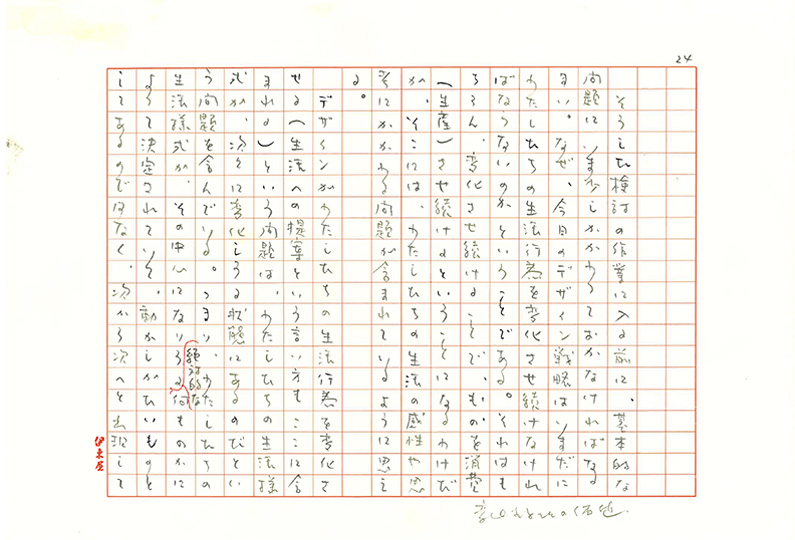 24
そうした検討の作業に入る前に、基本的な
問題にいま少しかかわっておかなければなる
まい。なぜ、今日のデザイン戦略はいまだに
わたしたちの生活行為を変化させ続けなけれ
ばならないのかということである。それはも
ちろん、変化させ続けることで、ものを消費
(生産)させ続けるということになるわけだ
が、そこには、わたしたちの生活の感性や思
考にかかわる問題が含まれているように思え
る。
デザインがわたしたちの生活行為を変化さ
せる(生活への提案という言い方もここに含
まれる)という問題は、わたしたちの生活様
式が、次々に変化しうる状態にあるのだとい
う問題を含んでいる。つまり、わたしたちの
生活様式が、その中心になりうる何ものかに
絶対的な
よって決定されていず、動かしがたいものと
してあるのではなく、次から次へと出現して
伊東屋